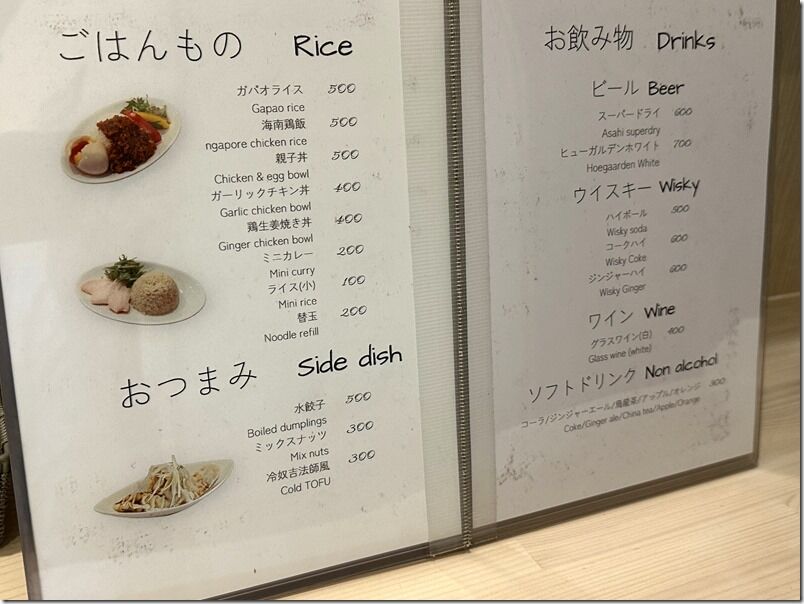 ごはんもの Rice
ガパオライス 500
Gapao rice
海南鶏飯 500
ngapore chicken rice
親子丼 500
Chicken & egg bowl
ガーリックチキン丼 400
Garlic chicken bowl
鶏生姜焼き丼 400
Ginger chicken bowl
ミニカレー 200
Mini curry
ライス(小) 100
Mini rice
替玉 200
Noodle refill
おつまみ Side dish
水餃子 500
Boiled dumplings
ミックスナッツ 300
Mix nuts
冷奴吉法師風 300
Cold TOFU
お飲み物 Drinks
ビール Beer
スーパードライ 600
Asahi superdry
ヒューガルデンホワイト 700
Hoegaarden White
ウイスキー Wisky
ハイボール 500
Wisky soda
コークハイ 600
Wisky Coke
ジンジャーハイ 600
Wisky Ginger
ワイン Wine
グラスワイン(白) 400
Glass wine (white)
ソフトドリンク Non alcohol
コーラ/ジンジャーエール/烏龍茶/アップル/オレンジ 300
Coke/Ginger ale/China tea/Apple/Orange